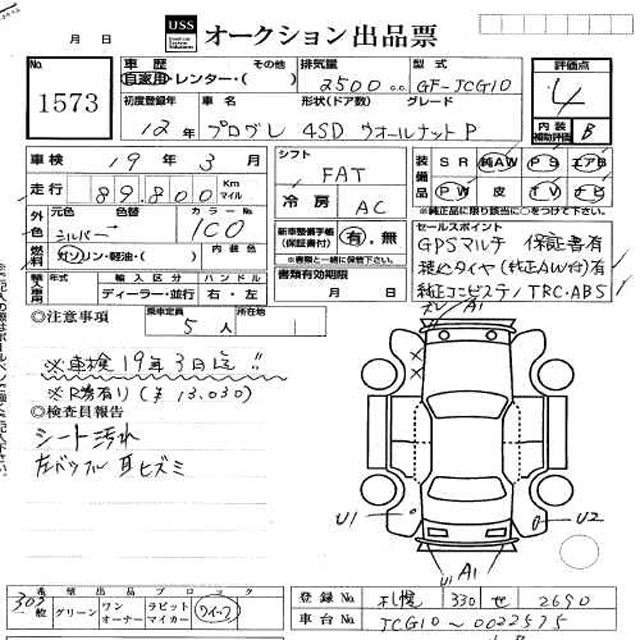 月 日 USS オークション出品票
No. 1573
車歴 その他 排気量 型式
自家用・レンター・( ) 2500 cc GF-JCG10
初度登録年 車名 形状(ドア数) グレード
12年 プログレ 4SD ウォールナットP
評価点 4
内装補助評価 B
車検 19年 3月
走行 89,800 Km マイル
外色 元色 色替 カラーNo.
シルバー 1C0
燃料 ガソリン・軽油・( ) 内装色
輸入車用 年式 輸入区分 ハンドル
ディーラー・並行 右・左
シフト FAT
冷房 AC
新車整備手帳(保証書付) 有・無
※書類と一緒に保管下さい。
書類有効期限
月 日
装備品 SR 純AW PS エアB
PW 皮 TV ナビ
※純正品に限り該当に○をつけて下さい。
セールスポイント
GPSマルチ 保証書有
積込タイヤ(純正AW付)有
純正コンビステ TRC・ABS
◎注意事項 乗車定員 5人 所在地
※車検19年3月迄!!
※R券有り(¥13,030)
◎検査員報告
シート汚れ
ズレ A1
U1 U2
U1 A1
希望出品ブロック
一般 グリーン ワンオーナー ラビットマイカー
登録No. 札幌 330 せ 2690
車台No. JCG10~0022575